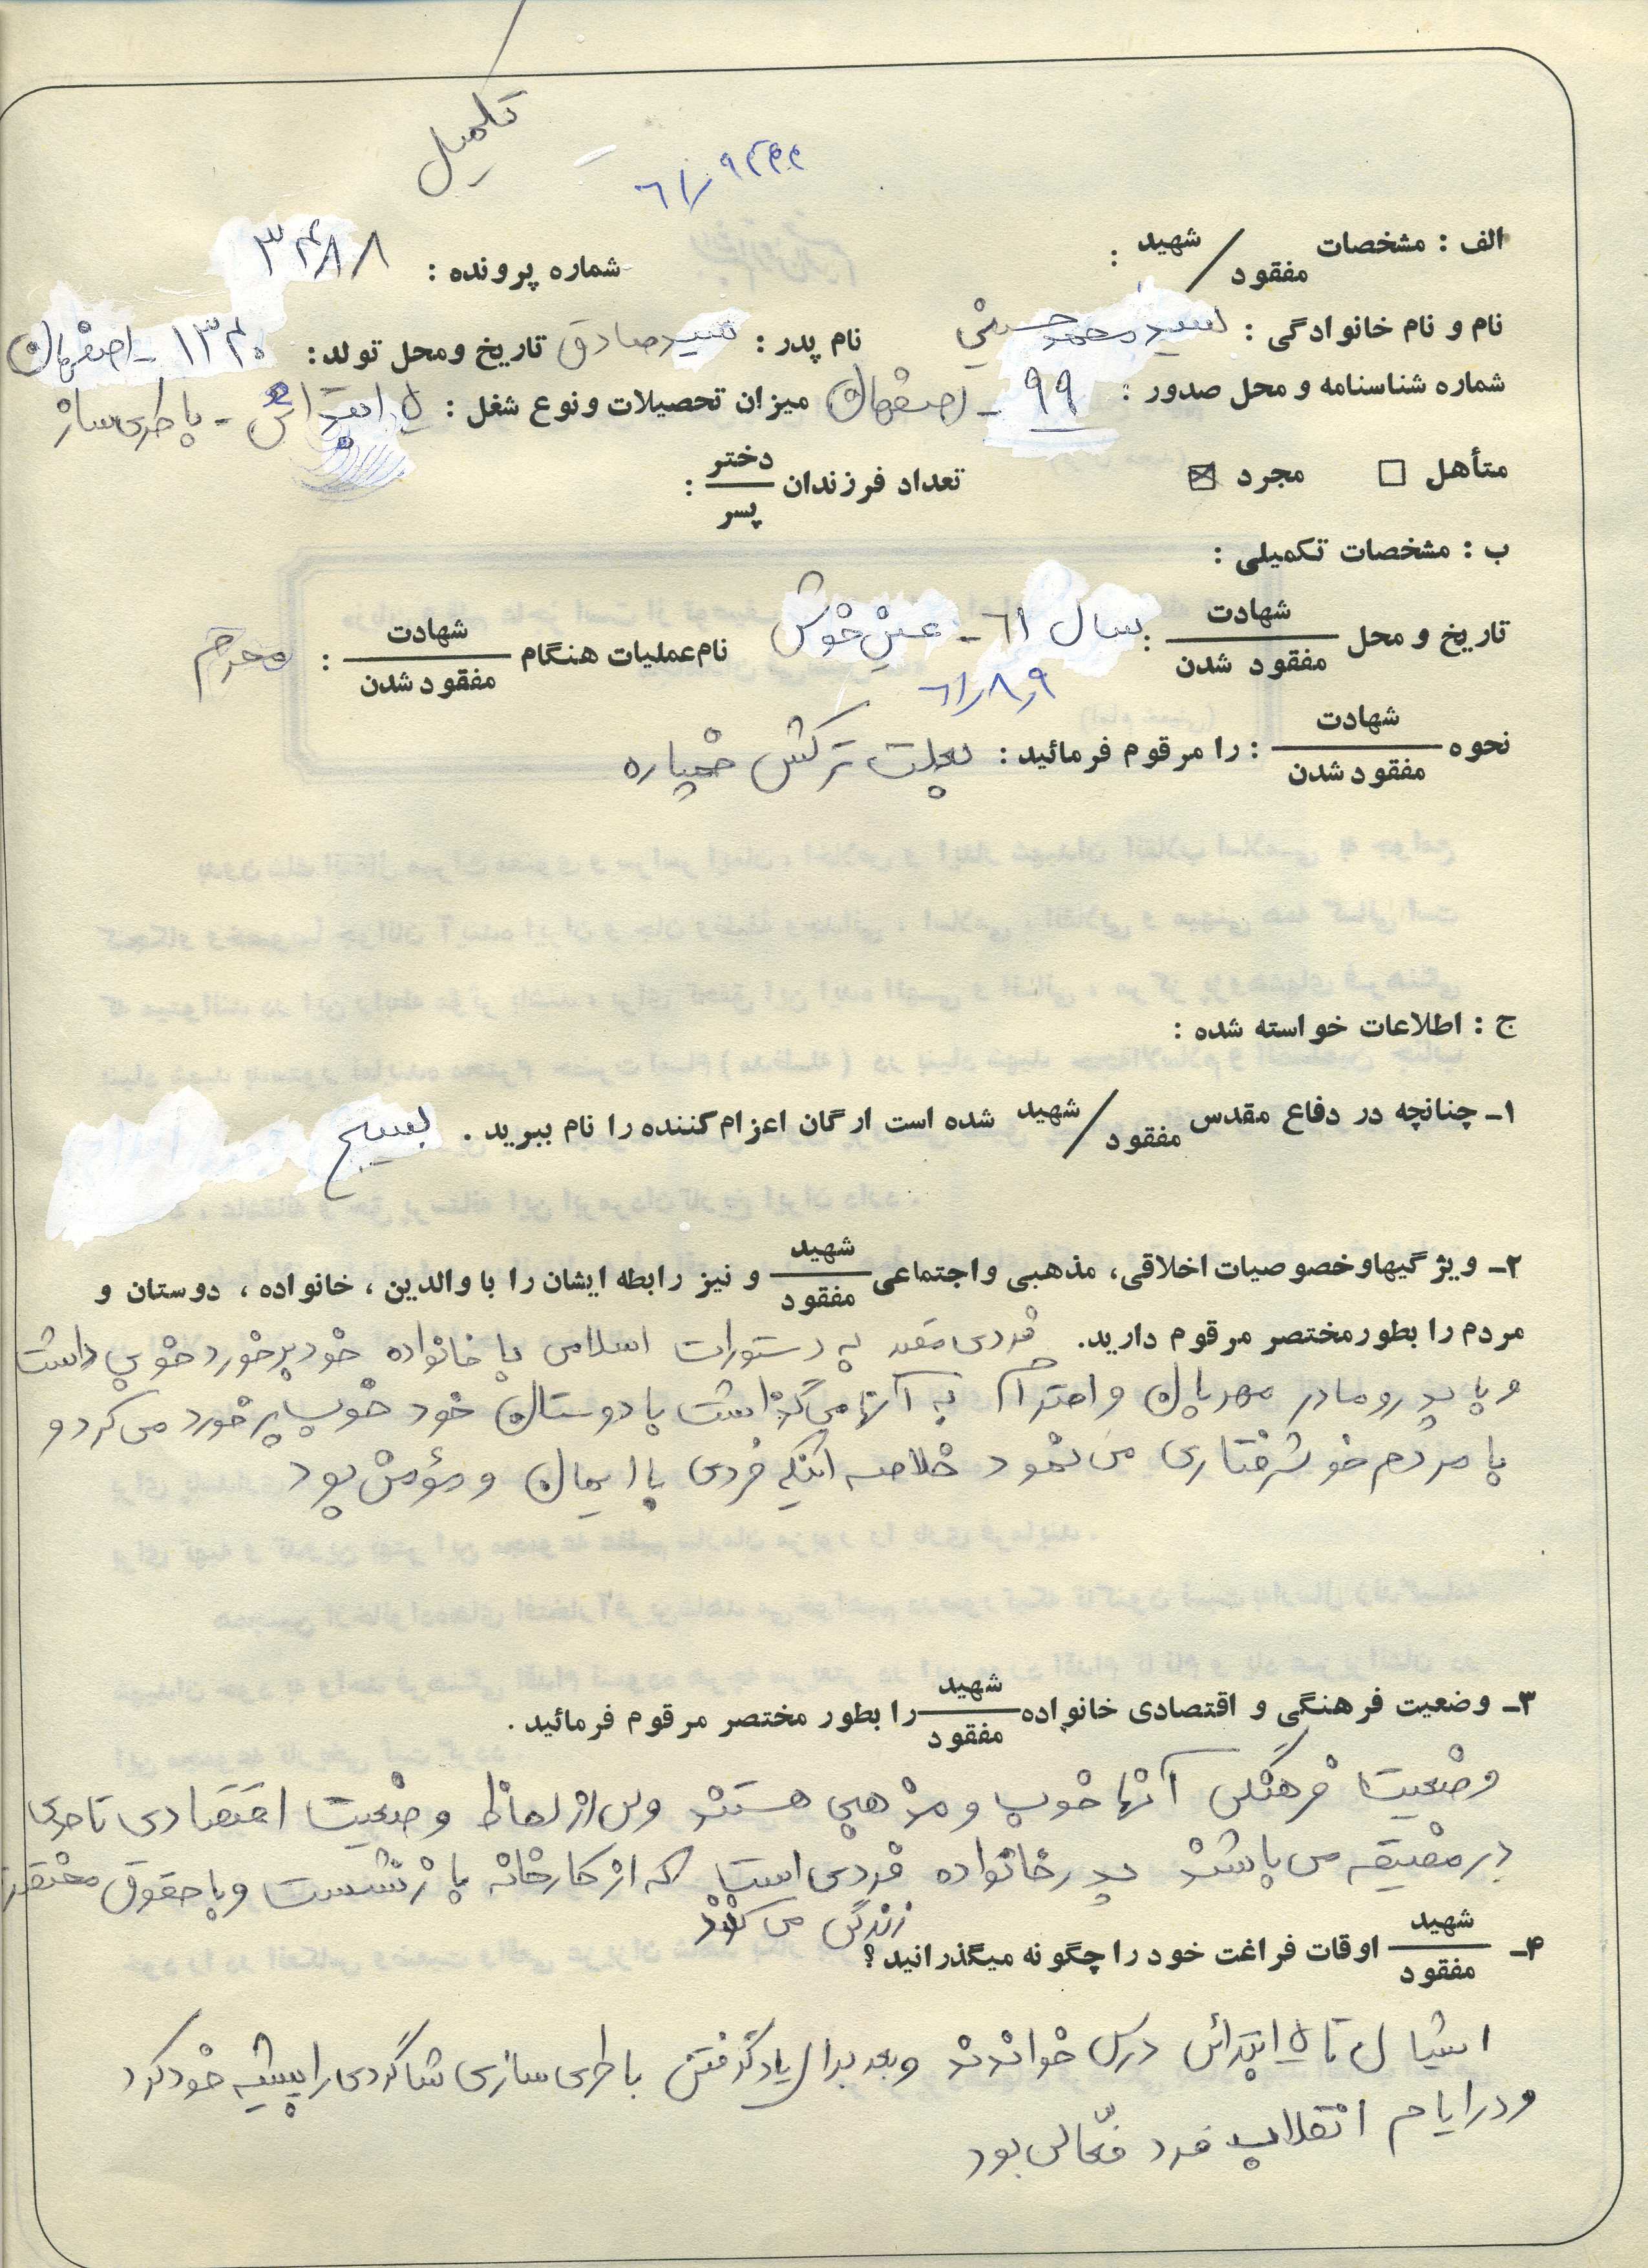 تکمیل
الف : مشخصات شهید / مفقود :
شماره پرونده : ۳۴۸۸
نام و نام خانوادگی : سید محمد حسینی نام پدر : سید صادق تاریخ و محل تولد : ۱۳۴۰ - اصفهان
شماره شناسنامه و محل صدور : ۹۹ - اصفهان میزان تحصیلات و نوع شغل : ابتدائی - باطری ساز
متأهل ☐ مجرد ☒ تعداد فرزندان دختر / پسر :
ب : مشخصات تکمیلی :
تاریخ و محل شهادت / مفقود شدن : سال ۶۱ - عین خوش نام عملیات هنگام شهادت / مفقود شدن : محرم
۶۱/۸/۹
نحوه شهادت / مفقود شدن : را مرقوم فرمائید : بعلت ترکش خمپاره
ج : اطلاعات خواسته شده :
۱ـ چنانچه در دفاع مقدس شهید / مفقود شده است ارگان اعزام کننده را نام ببرید . بسیج
۲ـ ویژگیها و خصوصیات اخلاقی، مذهبی و اجتماعی شهید / مفقود و نیز رابطه ایشان را با والدین ، خانواده ، دوستان و
مردم را بطور مختصر مرقوم دارید. فردی مقید به دستورات اسلامی با خانواده خود برخورد خوبی داشت
و با پدر و مادر مهربان و احترام به آنها می گذاشت با دوستان خود خوب برخورد می کرد و
با مردم خوشرفتاری می نمود خلاصه اینکه فردی با ایمان و مؤمن بود
۳ـ وضعیت فرهنگی و اقتصادی خانواده شهید / مفقود را بطور مختصر مرقوم فرمائید .
وضعیت فرهنگی آنها خوب و مذهبی هستند ولی از لحاظ وضعیت اقتصادی تا حدی
در مضیقه می باشند پدر خانواده فردی است که از کارخانه بازنشست و با حقوق مختصر
زندگی می کنند
۴ـ شهید / مفقود اوقات فراغت خود را چگونه میگذرانید ؟
ایشان تا ۵ ابتدائی درس خواندند و بعد بدنبال یاد گرفتن باطری سازی شاگردی را پیشه خود کرد
و در ایام انقلاب فرد فعّالی بود